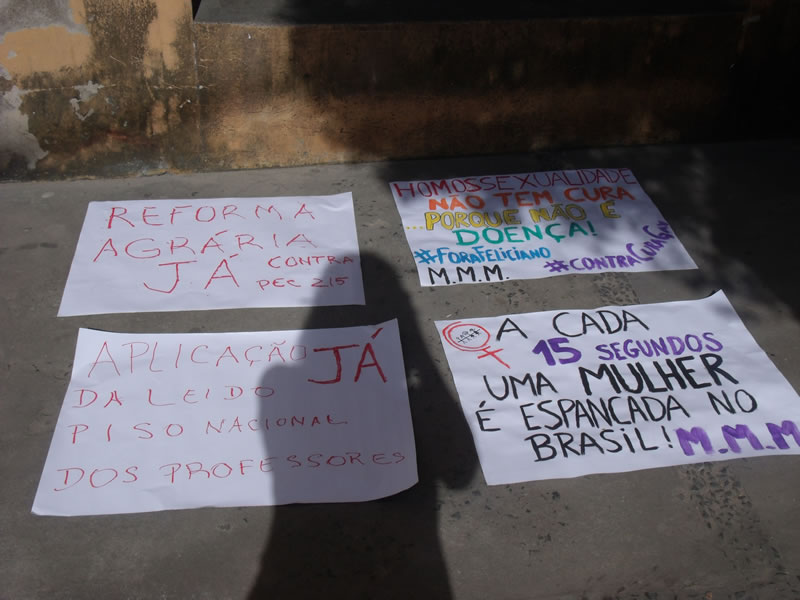 REFORMA
AGRÁRIA
JÁ CONTRA
PEC 215
HOMOSSEXUALIDADE
NÃO TEM CURA
...PORQUE NÃO É
DOENÇA!
#FORAFELICIANO
M.M.M. #CONTRACURAGAY
APLICAÇÃO JÁ
DA LEI DO
PISO NACIONAL
DOS PROFESSORES
A CADA
15 SEGUNDOS
UMA MULHER
É ESPANCADA NO
BRASIL! M.M.M